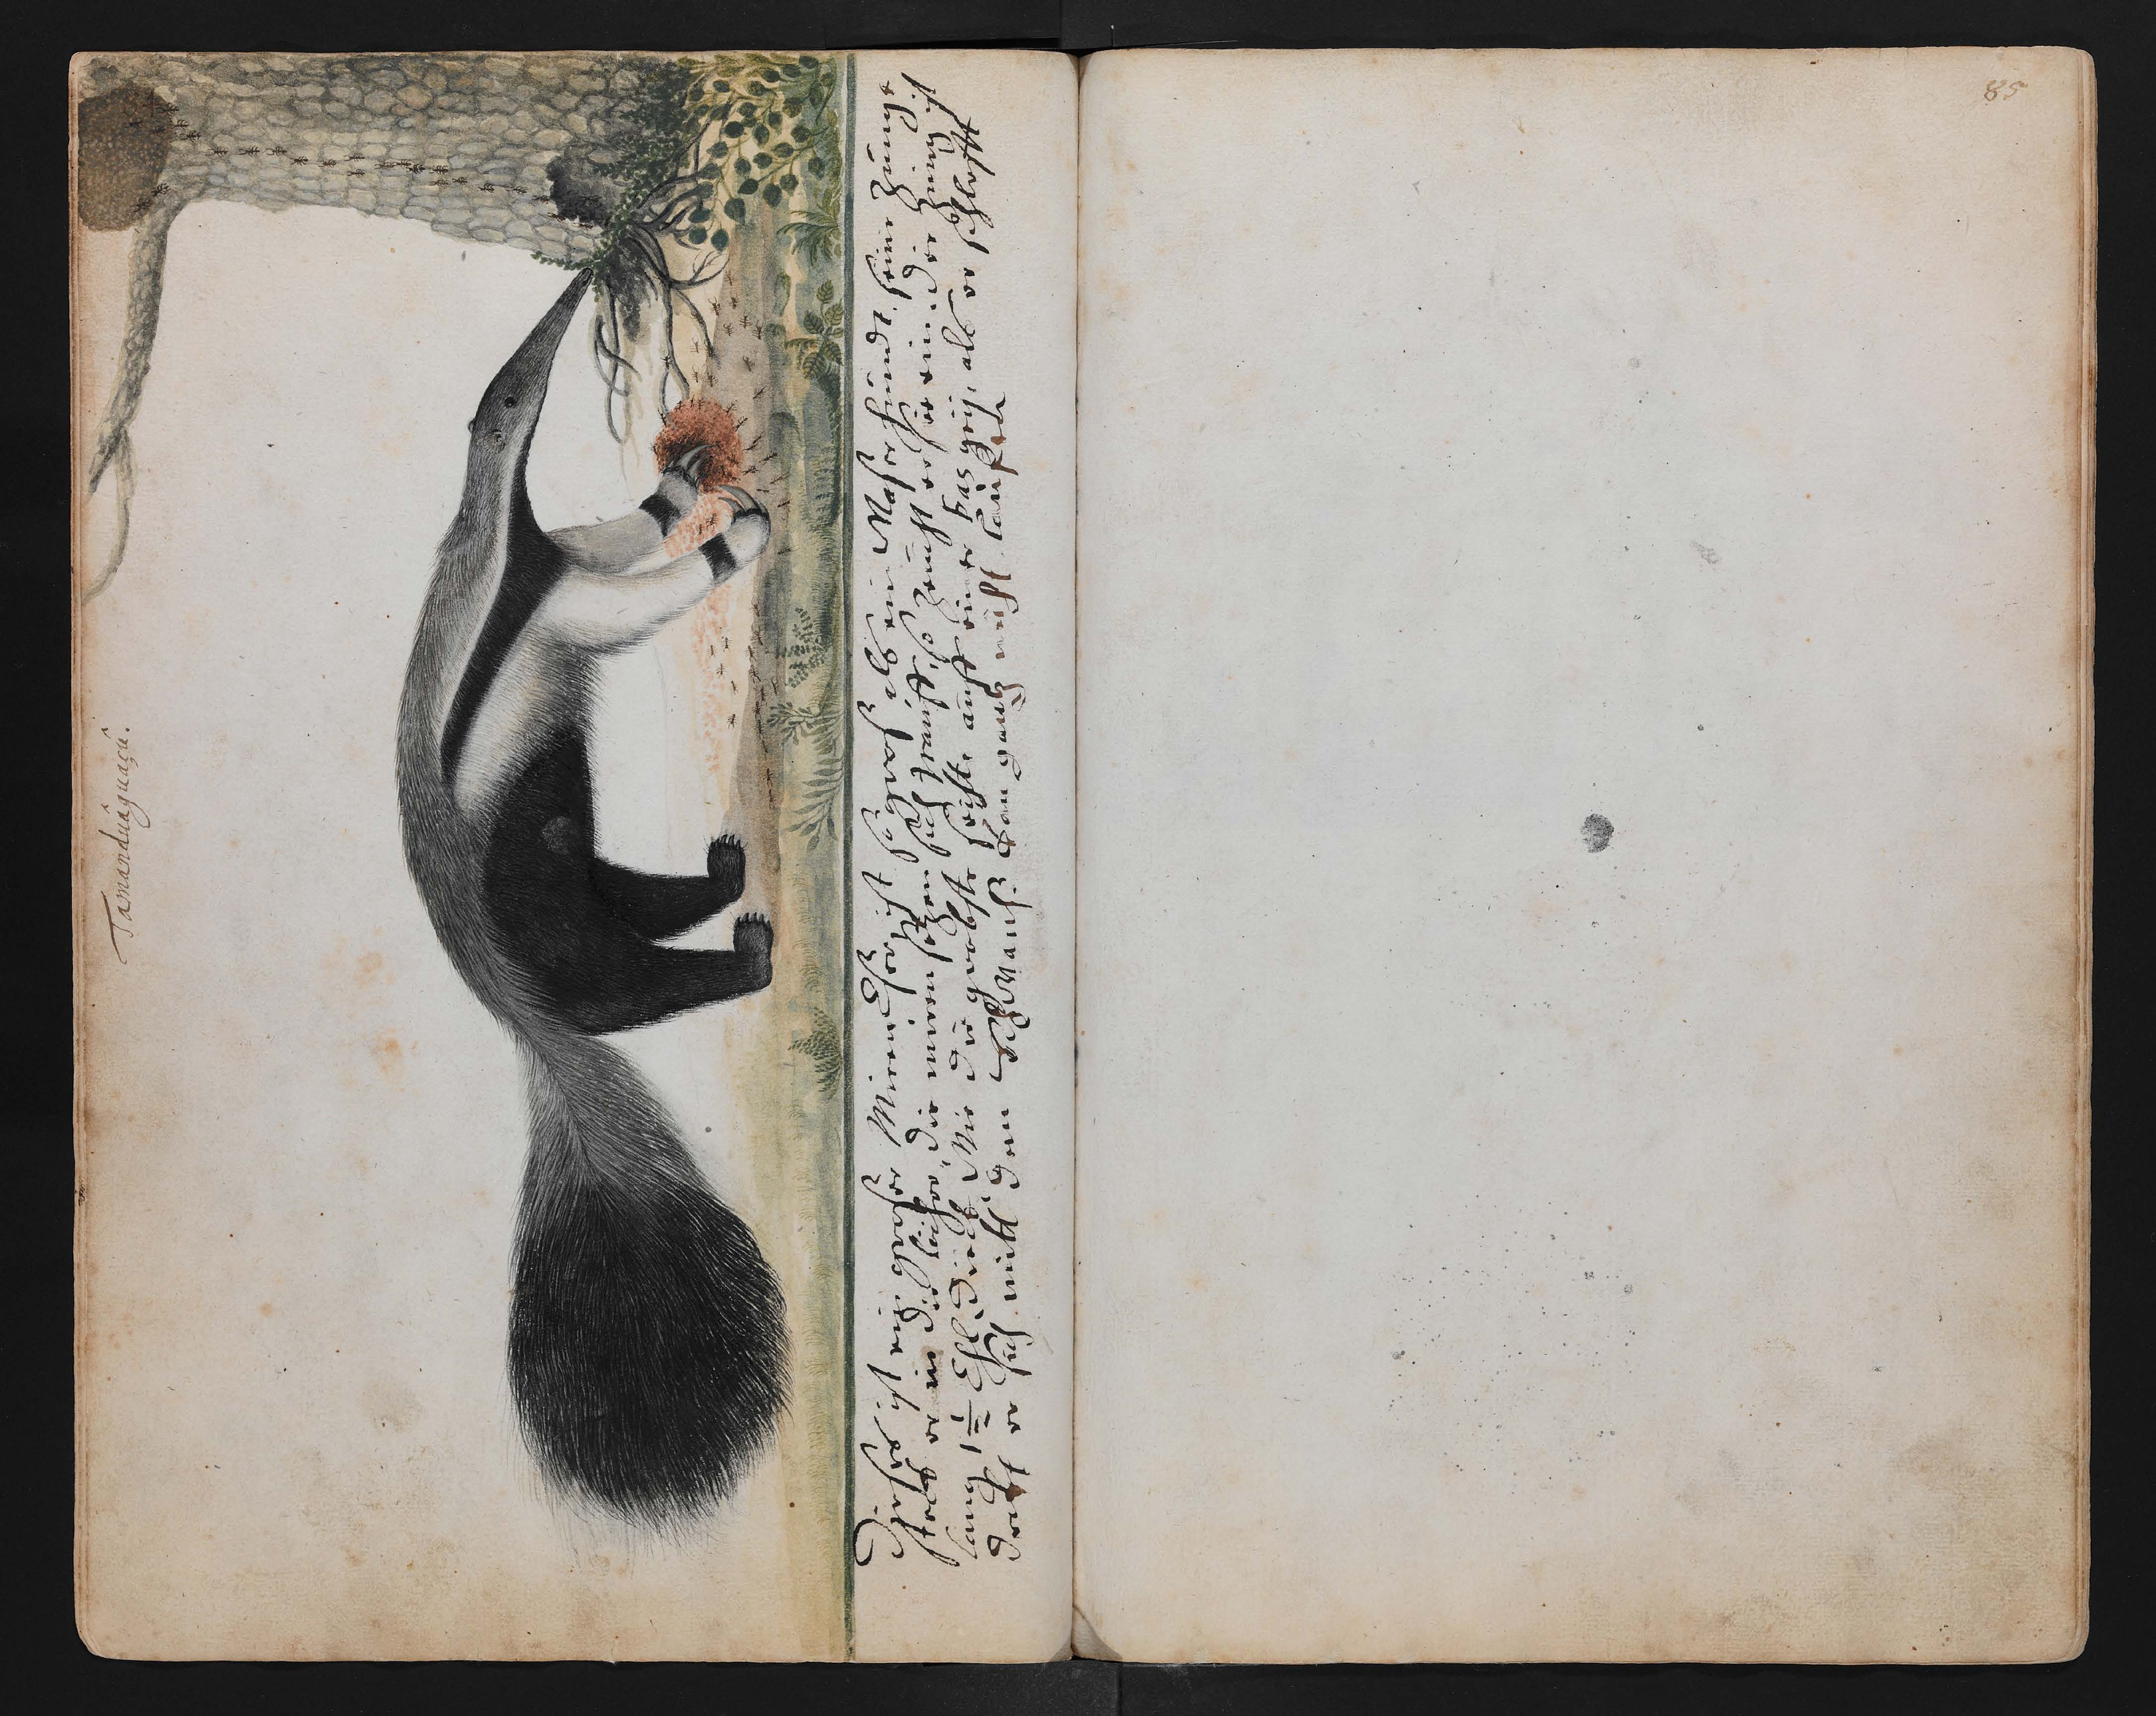 Tamanduâguaçû.
Dießes ist ein großer Miren Eßer, ist so groß als ein Waßerhundt, seine Zunge
steckt er in die löcher, die miren setzen sich drauff, so zeucht er sie ein, die Zung ist
lang 1½ Ehl, dick wie die grobste seihte auff einer Bas geig, als er schlofft
deckt er sich mitt dem Schwantz kan gantz nicht lauffen
85